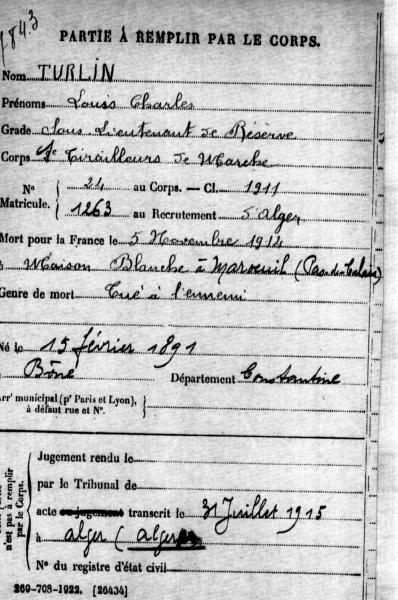 1843
PARTIE À REMPLIR PAR LE CORPS.
Nom TURLIN
Prénoms Louis Charles
Grade Sous Lieutenant de Réserve
Corps 1e Tirailleurs de Marche
N° Matricule. 24 au Corps. — Cl. 1911
1263 au Recrutement d'Alger
Mort pour la France le 5 Novembre 1914
à Maison Blanche à Maroeuil (Pas-de-Calais)
Genre de mort Tué à l'ennemi
Né le 15 février 1891
Bône Département Constantine
Arr' municipal (p' Paris et Lyon), à défaut rue et N°.
n'est pas à remplir par le Corps.
Jugement rendu le
par le Tribunal de
acte ou jugement transcrit le 31 Juillet 1915
à alger (alger)
N° du registre d'état civil
269-708-1922. [26434]